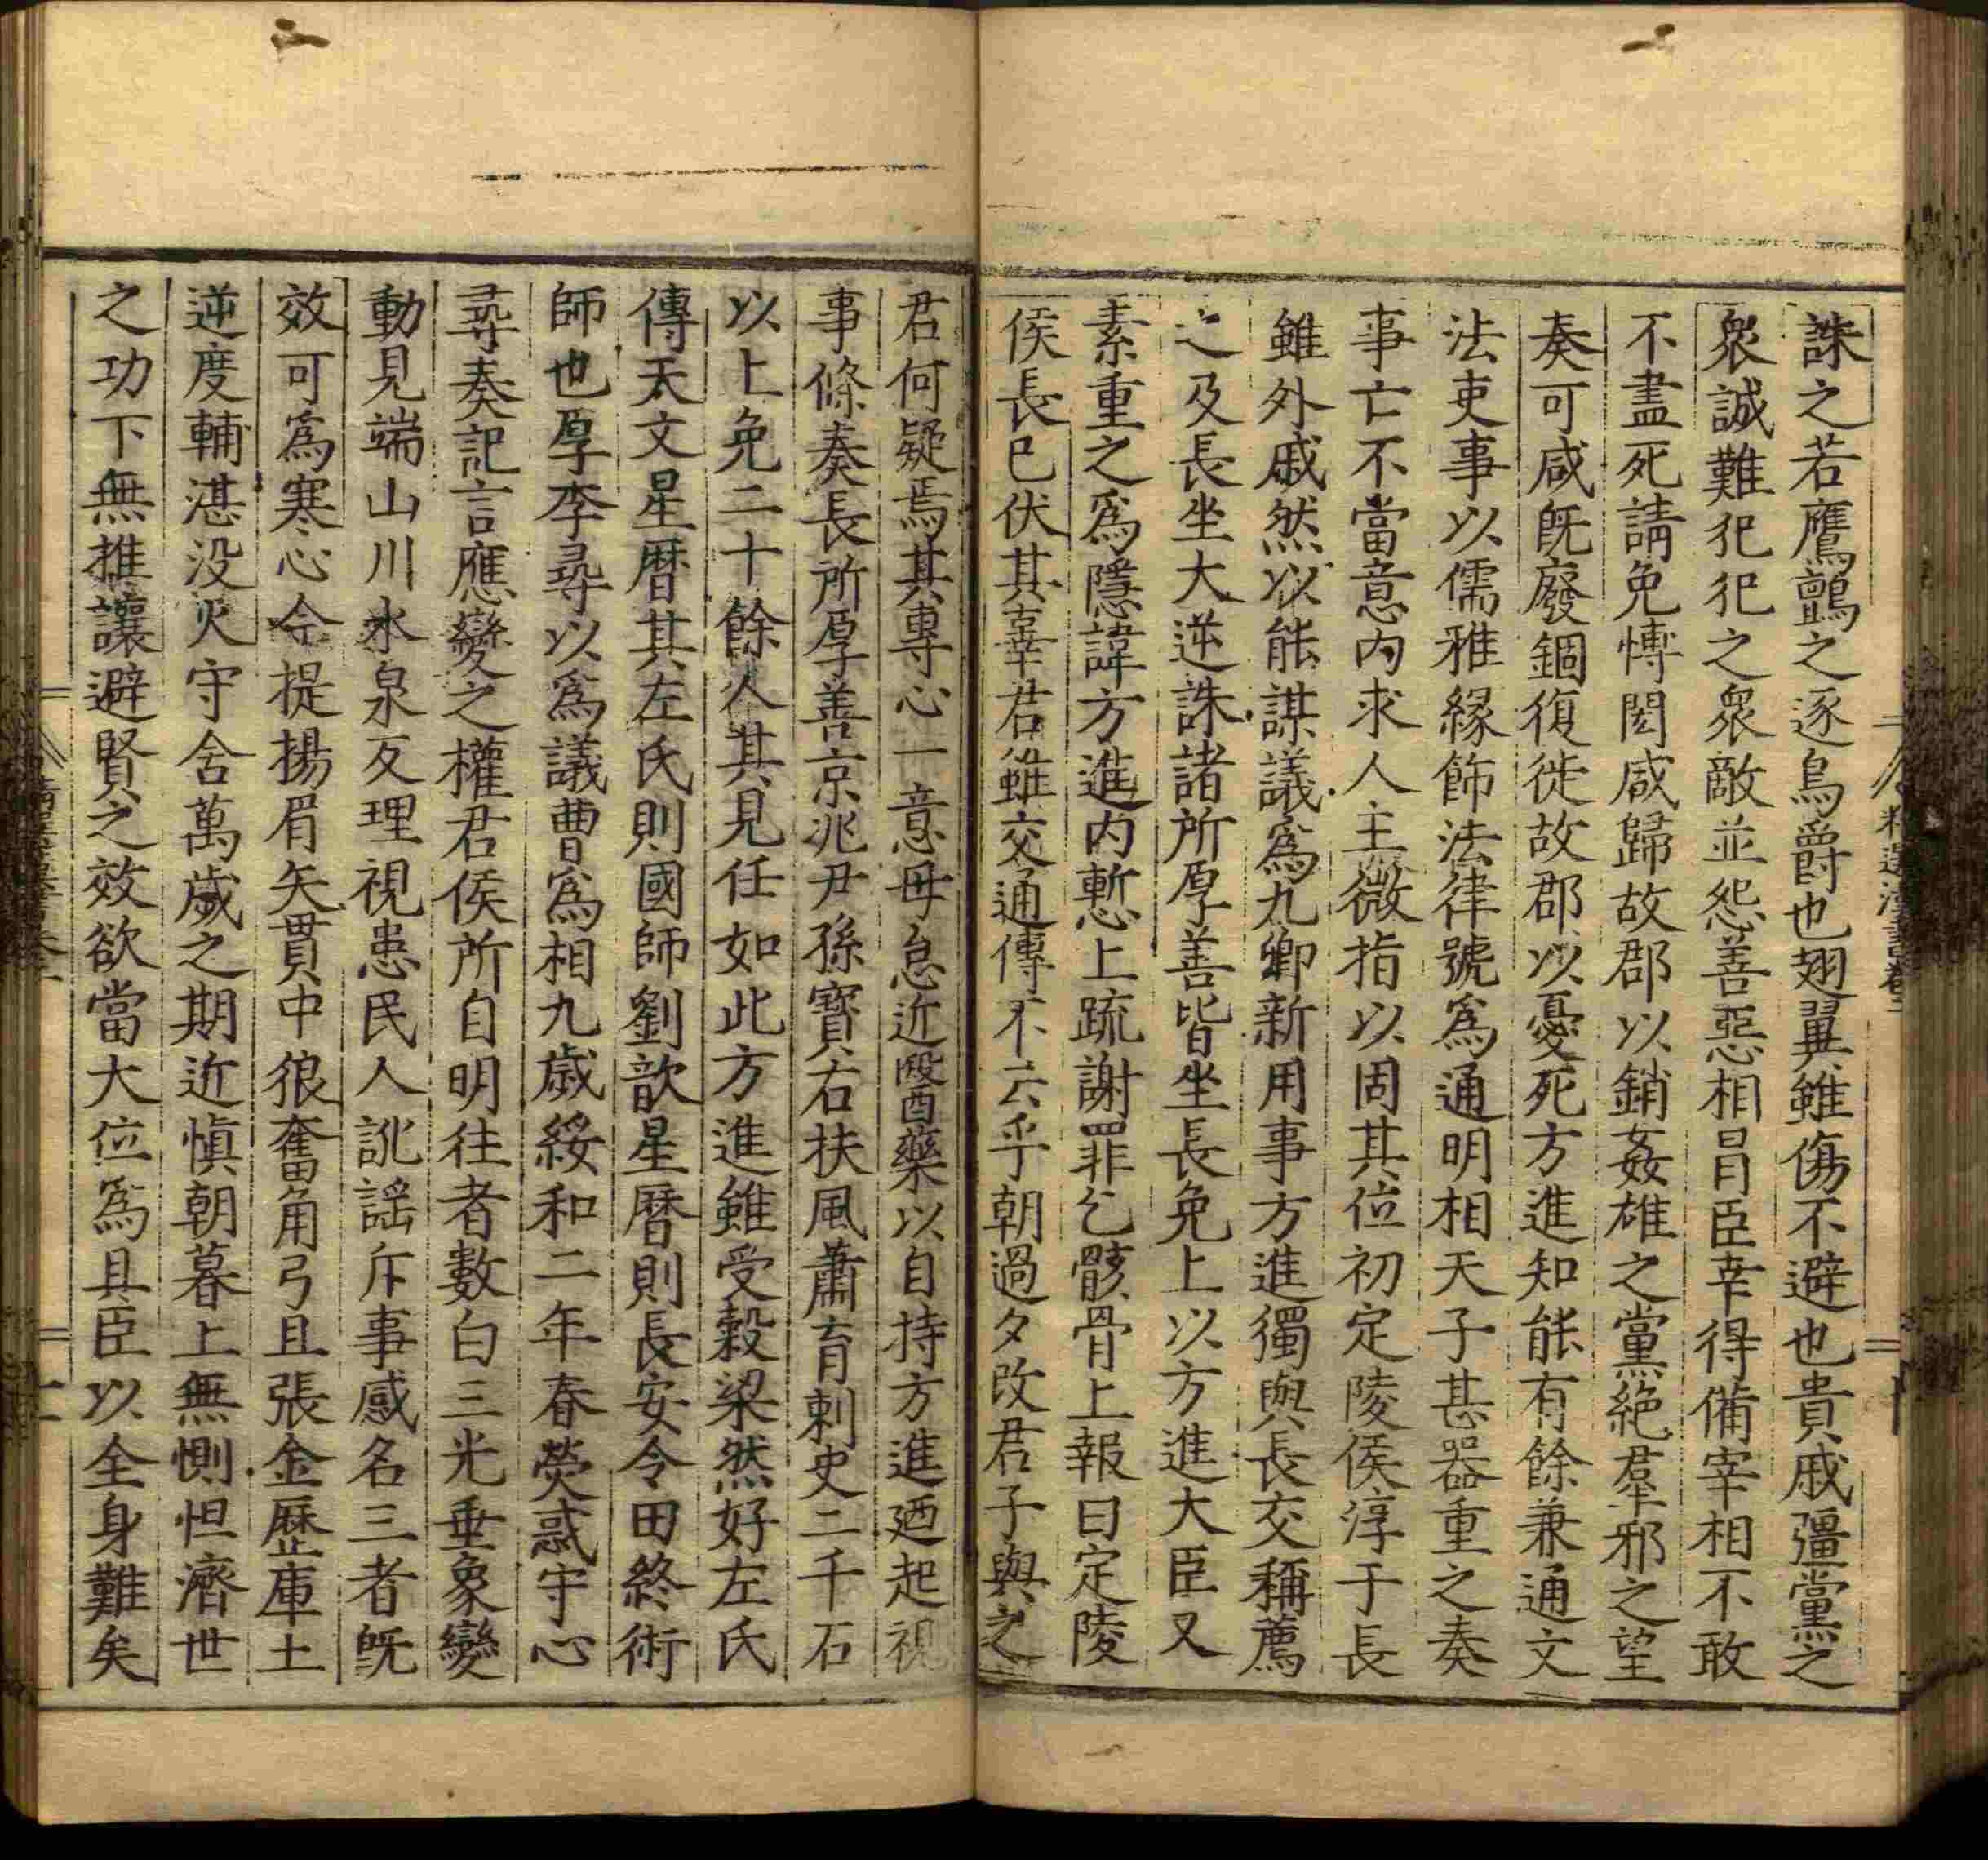 誅之若鷹鸇之逐鳥爵也翅翼雖傷不避也貴戚彊黨之
衆誠難犯犯之衆敵並怨善惡相冒臣幸得備宰相不敢
不盡死請免博閎咸歸故郡以銷姦雄之黨絶羣邪之望
奏可咸旣廢錮復徙故郡以憂死方進知能有餘兼通文
法吏事以儒雅緣飾法律號爲通明相天子甚器重之奏
事亡不當意內求人主微指以固其位初定陵侯淳于長
雖外戚然以能謀議爲九卿新用事方進獨與長交稱薦
之及長坐大逆誅諸所厚善皆坐長免上以方進大臣又
素重之爲隱諱方進內慙上疏謝罪乞骸骨上報曰定陵
侯長已伏其辜君雖交通傳不云乎朝過夕改君子與之
君何疑焉其專心一意毋怠近醫藥以自持方進廼起視
事條奏長所厚善京兆尹孫寶右扶風蕭育刺史二千石
以上免二十餘人其見任如此方進雖受穀梁然好左氏
傳天文星曆其左氏則國師劉歆星曆則長安令田終術
師也厚李尋以爲議曹爲相九歲綏和二年春熒惑守心
尋奏記言應變之權君侯所自明往者數白三光垂象變
動見端山川水泉反理視患民人訛謡斥事感名三者旣
效可爲寒心今提揚眉矢貫中狼奮角弓且張金歷庫土
逆度輔湛没火守舍萬歲之期近慎朝暮上無惻怛濟世
之功下無推讓避賢之效欲當大位爲具臣以全身難矣